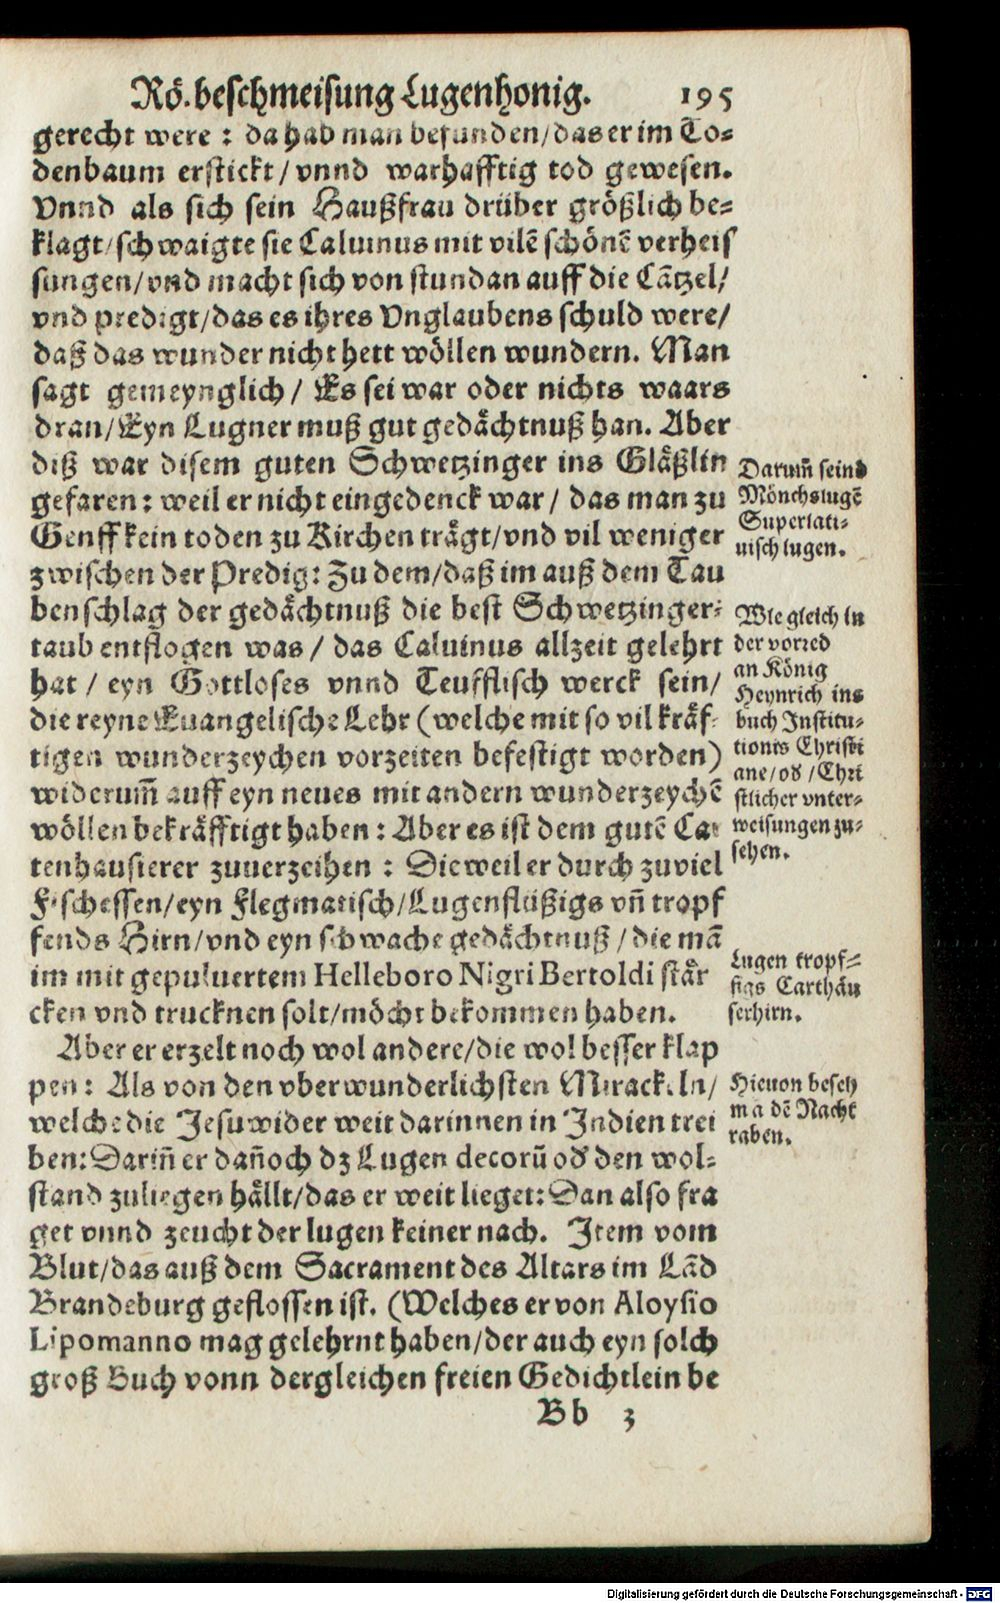 Rö. beschmeisung Lugenhonig. 195
gerecht were : da hab man befunden/das er im To=
denbaum erstickt/ vnnd warhafftig tod gewesen.
Vnnd als sich sein Haußfrau drüber größlich be=
klagt/schwaigte sie Caluinus mit vilẽ schönẽ verheis
sungen/vnd macht sich von stund an auff die Cãtzel/
vnd predigt/das es ihres Vnglaubens schuld were/
daß das wunder nicht hett wöllen wundern. Man
sagt gemeynglich/ Es sei war oder nichts waars
dran/Eyn Lugner muß gut gedächtnuß han. Aber
diß war disem guten Schwetzinger ins Gläßlin
gefaren: weil er nicht eingedenck war/ das man zu
Genff kein toden zu Kirchen trägt/vnd vil weniger
zwischen der Predig: Zu dem/daß im auß dem Tau
benschlag der gedächtnuß die best Schwetzinger=
taub entflogen was/ das Caluinus allzeit gelehrt
hat/ eyn Gottloses vnnd Teufflisch werck sein/
die reyne Euangelische Lehr (welche mit so vil kräf=
tigen wunderzeychen vorzeiten befestigt worden)
widerum̃ auff eyn neues mit andern wunderzeychẽ
wöllen bekräfftigt haben: Aber es ist dem gutẽ Car
tenhausierer zuuerzeihen : Dieweil er durch zuviel
Fischessen/eyn Flegmatisch/Lugenflüßigs vñ tropf
fends Hirn/vnd eyn schwache gedächtnuß/die mã
im mit gepuluertem Helleboro Nigri Bertoldi stär
cken vnd trucknen solt/möcht bekommen haben.
Aber er erzelt noch wol andere/die wol besser klap
pen: Als von den vberwunderlichsten Mirackeln/
welche die Jesuwider weit darinnen in Indien trei
ben: Dariñ er dañoch dz Lugen decorũ od den wol=
stand zuliegen hällt/das er weit lieget: Dan also fra
get vnnd zeucht der lugen keiner nach. Item vom
Blut/das auß dem Sacrament des Altars im Lãd
Brandeburg geflossen ist. (Welches er von Aloysio
Lipomanno mag gelehrnt haben/der auch eyn solch
groß Buch vonn dergleichen freien Gedichtlein be
Bb 3
Darum̃ seind
Mönchslugẽ
Superlati=
uisch lugen.
Wie gleich in
der vorred
an König
Heynrich ins
buch Institu=
tionis Christi
ane/od/Chri
stlicher vnter=
weisungen zu=
sehen.
Lugen tropf=
sigs Carthäu
serhirn.
Hieuon besch
m a dẽ Nacht
raben.
Digitalisierung gefördert durch die Deutsche Forschungsgemeinschaft - DFG